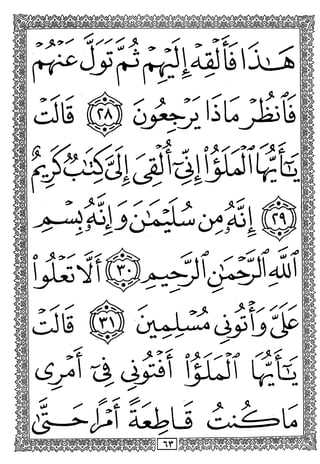 هَٰذَا فَأَلْقِهْ إِلَيْهِمْ ثُمَّ تَوَلَّ عَنْهُمْ
فَٱنظُرْ مَاذَا يَرْجِعُونَ ٢٨ قَالَتْ
يَٰٓأَيُّهَا ٱلْمَلَؤُا۟ إِنِّىٓ أُلْقِىَ إِلَىَّ كِتَٰبٌ كَرِيمٌ
٢٩ إِنَّهُۥ مِن سُلَيْمَٰنَ وَإِنَّهُۥ بِسْمِ
ٱللَّهِ ٱلرَّحْمَٰنِ ٱلرَّحِيمِ ٣٠ أَلَّا تَعْلُوا۟
عَلَىَّ وَأْتُونِى مُسْلِمِينَ ٣١ قَالَتْ
يَٰٓأَيُّهَا ٱلْمَلَؤُا۟ أَفْتُونِى فِىٓ أَمْرِى
مَا كُنتُ قَاطِعَةً أَمْرًا حَتَّىٰ
٦٣